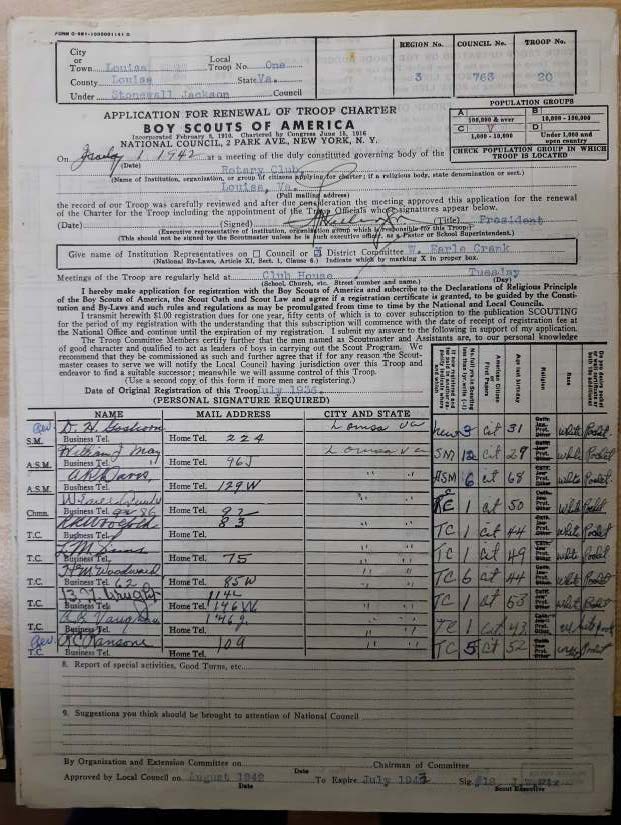 City or Town Louisa Local Troop No. One
County Louisa State Va.
Under Stonewall Jackson Council
REGION No. COUNCIL No. TROOP No.
3 763 20
APPLICATION FOR RENEWAL OF TROOP CHARTER
BOY SCOUTS OF AMERICA
Incorporated February 8, 1910. Chartered by Congress June 15, 1916
NATIONAL COUNCIL, 2 PARK AVE., NEW YORK, N. Y.
POPULATION GROUPS
A 100,000 & over B 10,000 - 100,000
C V 1,000 - 10,000 D Under 1,000 and open country
CHECK POPULATION GROUP IN WHICH TROOP IS LOCATED
On 1 1942 at a meeting of the duly constituted governing body of the
(Date)
Rotary Club,
(Name of Institution, organization, or group of citizens applying for charter; if a religious body, state denomination or sect.)
Louisa, Va.
(Full mailing address)
the record of our Troop was carefully reviewed and after due consideration the meeting approved this application for the renewal
of the Charter for the Troop including the appointment of the Troop Officials whose signatures appear below.
(Date) (Signed) (Title) President
(Executive representative of institution, organization group which is responsible for this Troop)
(This should not be signed by the Scoutmaster unless he is such executive officer, as a Pastor or School Superintendent.)
Give name of Institution Representatives on Council or X District Committee W. Earle Crank
(National By-Laws, Article XI, Sect. 1, Clause 6.) Indicate which by marking X in proper box.
Meetings of the Troop are regularly held at Club House Tuesday
(School, Church, etc. Street number and name.) (Day)
I hereby make application for registration with the Boy Scouts of America and subscribe to the Declarations of Religious Principle
of the Boy Scouts of America, the Scout Oath and Scout Law and agree if a registration certificate is granted, to be guided by the Constitu-
tion and By-Laws and such rules and regulations as may be promulgated from time to time by the National and Local Councils.
I transmit herewith $1.00 registration dues for one year, fifty cents of which is to cover subscription to the publication SCOUTING
for the period of my registration with the understanding that this subscription will commence with the date of receipt of registration fee at
the National Office and continue until the expiration of my registration. I submit my answer to the following in support of my application.
The Troop Committee Members certify further that the men named as Scoutmaster and Assistants are, to our personal knowledge
of good character and qualified to act as leaders of boys in carrying out the Scout Program. We
recommend that they be commissioned as such and further agree that if for any reason the Scout-
master ceases to serve we will notify the Local Council having jurisdiction over this Troop and
endeavor to find a suitable successor; meanwhile we will assume control of this Troop.
(Use a second copy of this form if more men are registering.)
Date of Original Registration of this Troop July 1936.
(PERSONAL SIGNATURE REQUIRED)
American Citizen or First Papers
Age last birthday
Religion
Race
NAME MAIL ADDRESS CITY AND STATE
D. H. Louisa Va new 3 cit 31 white
S.M. Business Tel. Home Tel. 224
William J May Louisa Va SM 12 cit 29 white
A.S.M. Business Tel. Home Tel. 965
Davis " " ASM 6 cit 68 white
A.S.M. Business Tel. Home Tel. 129W
" " 1 cit 50 white
Chmn. Business Tel. 86 Home Tel. 92
83 " " TC 1 cit 44 white
T.C. Business Tel. Home Tel.
L M Sims " " TC 1 cit 49 white
T.C. Business Tel. Home Tel. 75
H M Woodward " " TC 6 cit 44 white
T.C. Business Tel. 62 Home Tel. 85W
Wright 114L " " TC 1 cit 53 white
T.C. Business Tel. Home Tel. 146W
Vaughan 146J " " TC 1 cit 43 white
T.C. Business Tel. Home Tel.
Ransone " " TC 5 cit 52
T.C. Business Tel. Home Tel. 109
8. Report of special activities, Good Turns, etc.
9. Suggestions you think should be brought to attention of National Council
By Organization and Extension Committee on Chairman of Committee
Date
Approved by Local Council on August 1942 To Expire July 1943 Sig. #18
Date Scout Executive